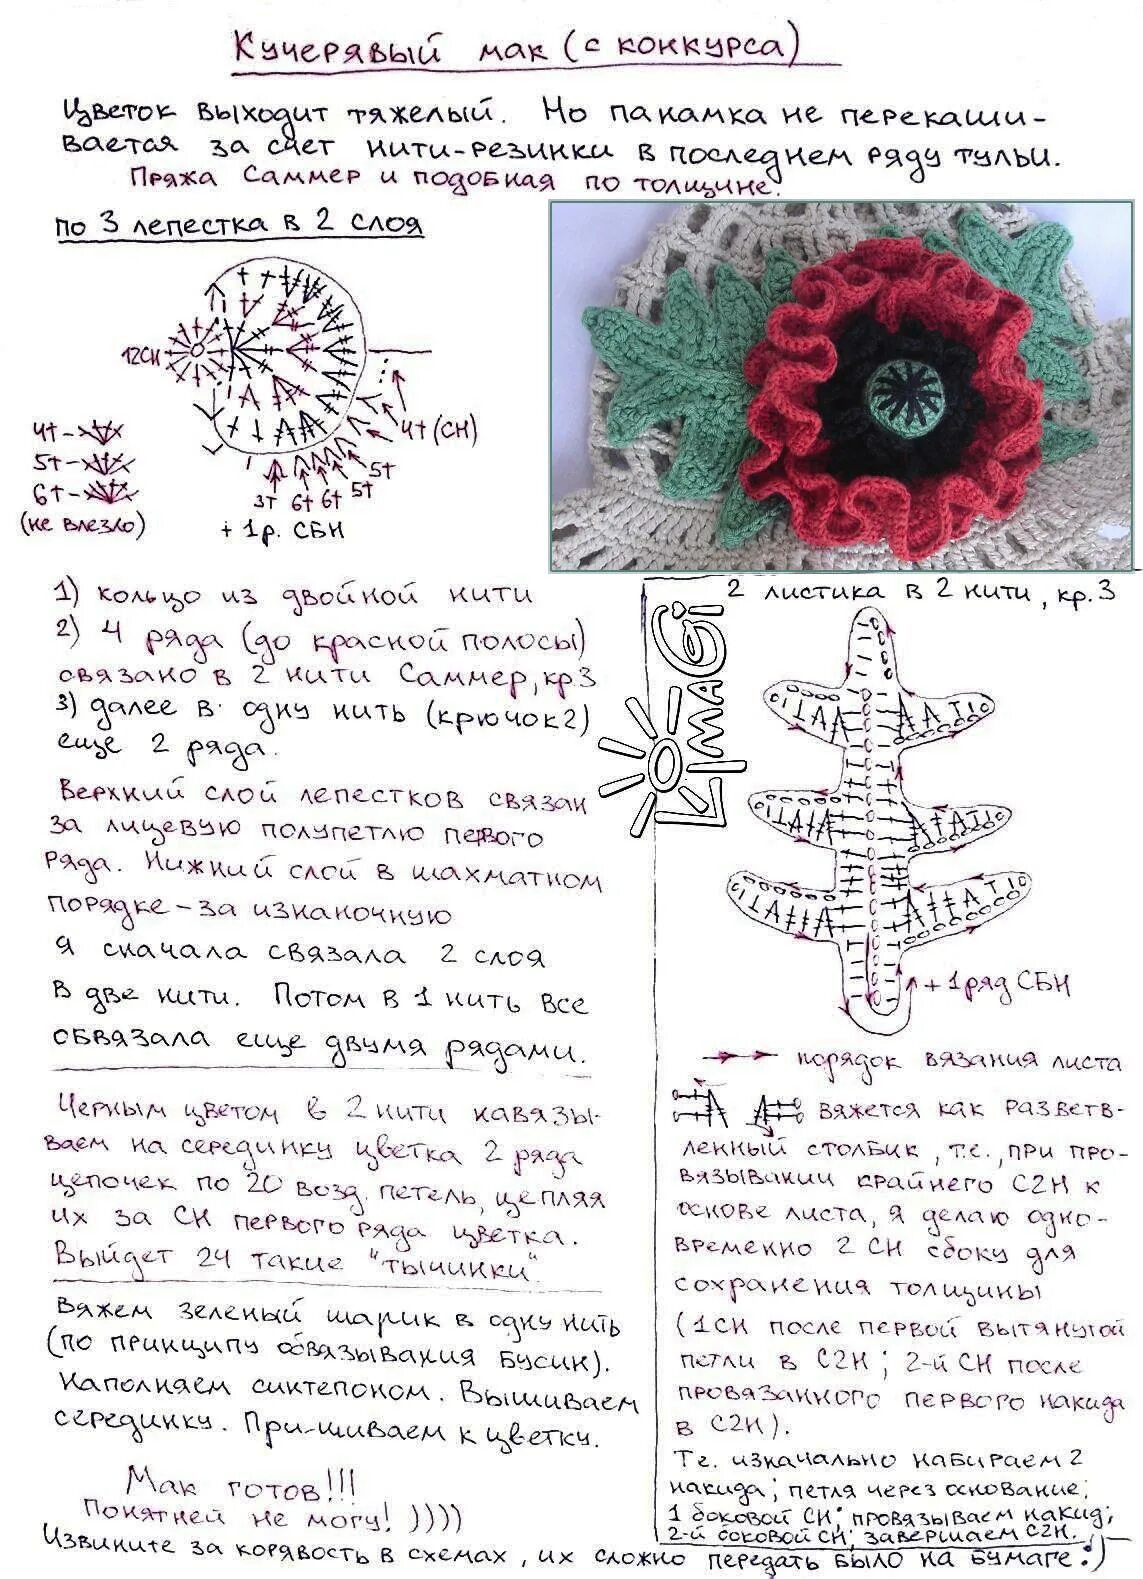 Кучерявый мак (с конкурса)
Цветок выходит тяжелый. Но панамка не перекаши-
вается за счет нити-резинки в последнем ряду тульи.
Пряжа Саммер и подобная по толщине.
по 3 лепестка в 2 слоя
12СН
4т-
5т-
6т-
(не влезло)
4т (СН)
5т
5т
6т
6т
3т
+ 1р. СБН
1) кольцо из двойной нити
2) 4 ряда (до красной полосы)
связано в 2 нити Саммер, кр3
3) далее в одну нить (крючок 2)
еще 2 ряда.
Верхний слой лепестков связан
за лицевую полупетлю первого
ряда. Нижний слой в шахматном
порядке - за изнаночную
Я сначала связала 2 слоя
в две нити. Потом в 1 нить все
обвязала еще двумя рядами.
Черным цветом в 2 нити навязы-
ваем на серединку цветка 2 ряда
цепочек по 20 возд. петель, цепляя
их за СН первого ряда цветка.
Выйдет 24 такие "тычинки".
Вяжем зеленый шарик в одну нить
(по принципу обвязывания бусин).
Наполняем синтепоном. Вышиваем
серединку. При-шиваем к цветку.
Мак готов!!!
Понятней не могу! ))))
LiMAGi
2 листика в 2 нити, кр.3
+ 1 ряд СБН
порядок вязания листа
вяжется как разветв-
ленный столбик, т.е., при про-
вязывании крайнего С2Н к
основе листа, я делаю одно-
временно 2 СН сбоку для
сохранения толщины
(1СН после первой вытянутой
петли в С2Н; 2-й СН после
провязанного первого накида
в С2Н).
Т.е. изначально набираем 2
накида; петля через основание;
1 боковой СН; провязываем накид;
2-й боковой СН; завершаем С2Н.
Извините за корявость в схемах, их сложно передать было на бумаге :)